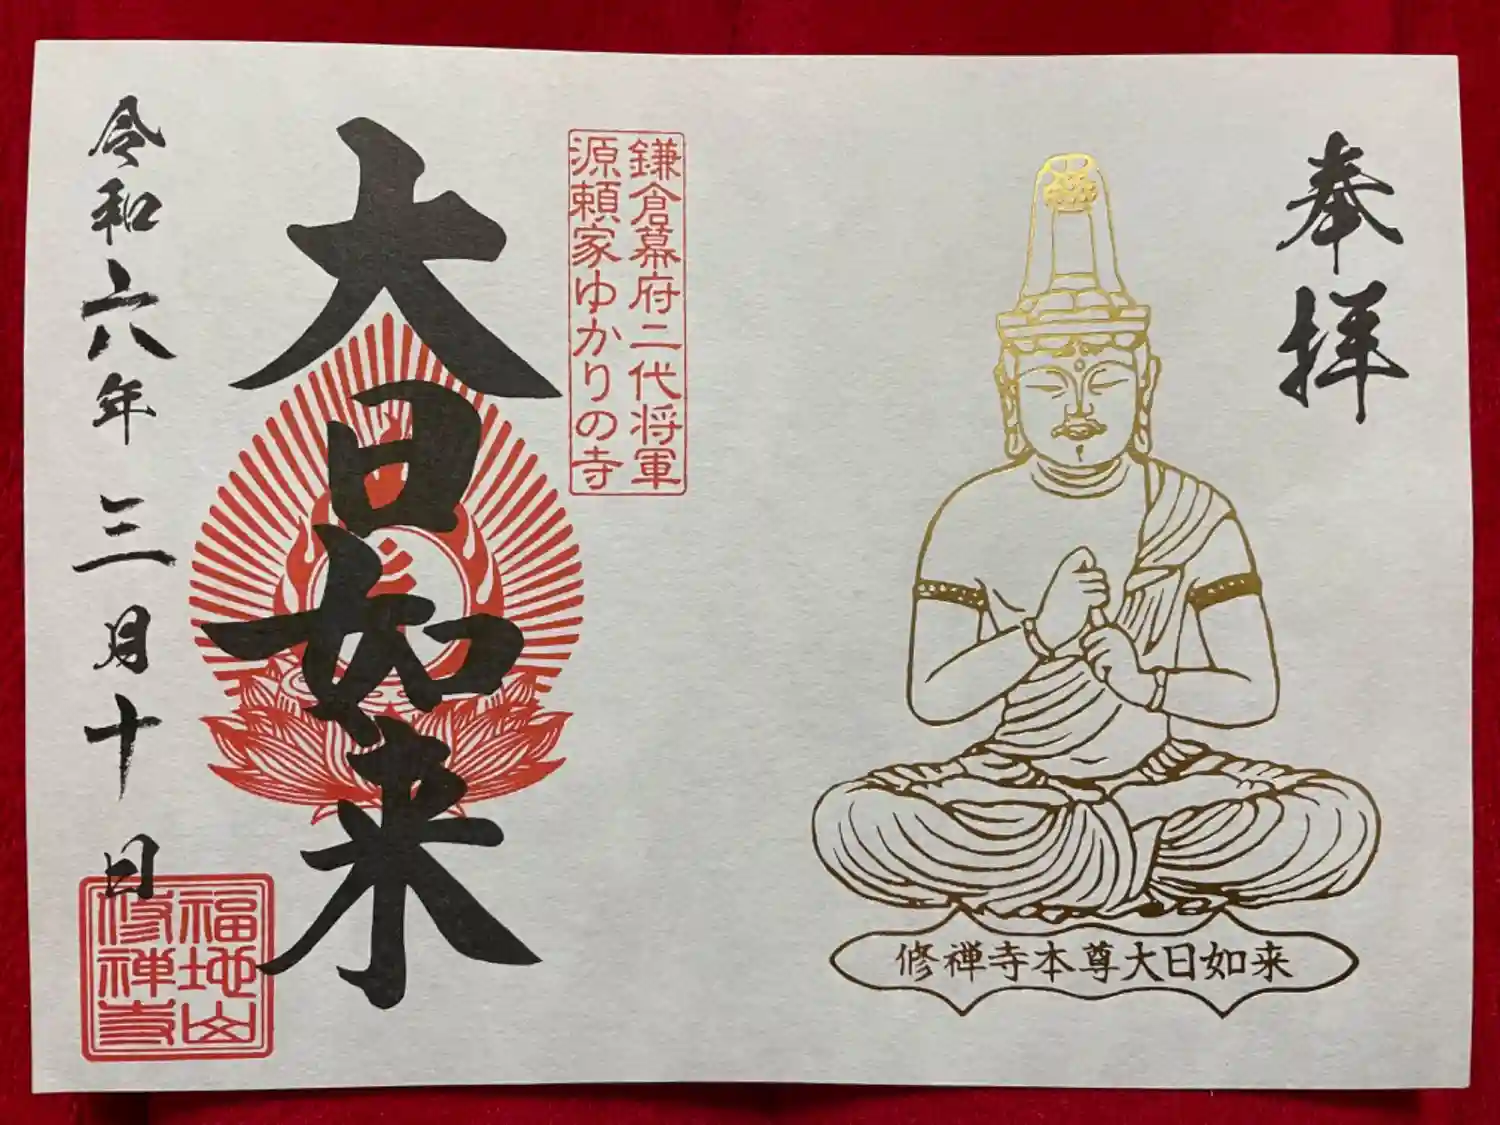 奉拝
修禅寺本尊大日如来
鎌倉幕府二代将軍
源頼家ゆかりの寺
大日如来
令和六年三月十日
福地山
修禅寺